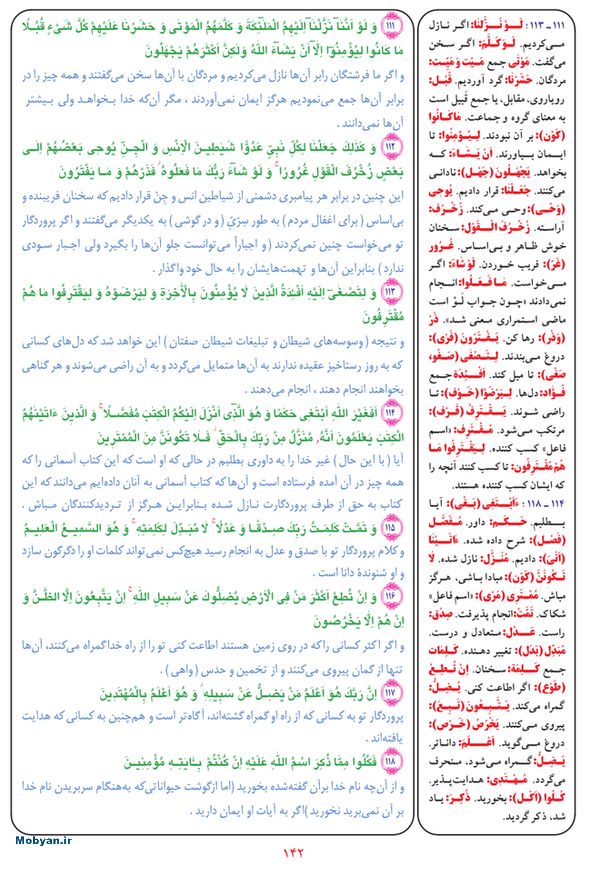 ۱۱۱ وَ لَوْ أَنَّنَا نَزَّلْنَا إِلَيْهِمُ الْمَلَٰئِكَةَ وَ كَلَّمَهُمُ الْمَوْتَىٰ وَ حَشَرْنَا عَلَيْهِمْ كُلَّ شَيْءٍ قُبُلًا
مَا كَانُوا لِيُؤْمِنُوا إِلَّا أَنْ يَشَاءَ اللَّهُ وَلَٰكِنَّ أَكْثَرَهُمْ يَجْهَلُونَ
و اگر ما فرشتگان رابر آن‌ها نازل می‌کردیم و مردگان با آن‌ها سخن می‌گفتند و همه چیز را در
برابر آن‌ها جمع می‌نمودیم هرگز ایمان نمی‌آوردند ، مگر آن‌که خدا بخواهد ولی بیشتر
آن‌ها نمی‌دانند .
۱۱۲ وَ كَذَٰلِكَ جَعَلْنَا لِكُلِّ نَبِيٍّ عَدُوًّا شَيَٰطِينَ الْإِنْسِ وَ الْجِنِّ يُوحِي بَعْضُهُمْ إِلَىٰ
بَعْضٍ زُخْرُفَ الْقَوْلِ غُرُورًا وَ لَوْ شَاءَ رَبُّكَ مَا فَعَلُوهُ فَذَرْهُمْ وَ مَا يَفْتَرُونَ
این چنین در برابر هر پیامبری دشمنی از شیاطین انس و جنّ قرار دادیم که سخنان فریبنده و
بی‌اساس ( برای اغفال مردم ) به طور سرّی ( و در گوشی ) به یکدیگر می‌گفتند و اگر پروردگار
تو می‌خواست چنین نمی‌کردند ( و اجباراً می‌توانست جلو آن‌ها را بگیرد ولی اجبار سودی
ندارد ) بنابراین آن‌ها و تهمت‌هایشان را به حال خود واگذار .
۱۱۳ وَ لِتَصْغَىٰ إِلَيْهِ أَفْئِدَةُ الَّذِينَ لَا يُؤْمِنُونَ بِالْآخِرَةِ وَ لِيَرْضَوْهُ وَ لِيَقْتَرِفُوا مَا هُمْ
مُقْتَرِفُونَ
و نتیجه ( وسوسه‌های شیطان و تبلیغات شیطان صفتان ) این خواهد شد که دل‌های کسانی
که به روز رستاخیز عقیده ندارند به آن‌ها متمایل می‌گردد و به آن راضی می‌شوند و هر گناهی
بخواهند انجام دهند ، انجام می‌دهند .
۱۱۴ أَفَغَيْرَ اللَّهِ أَبْتَغِي حَكَمًا وَ هُوَ الَّذِي أَنْزَلَ إِلَيْكُمُ الْكِتَٰبَ مُفَصَّلًا وَ الَّذِينَ ءَاتَيْنَٰهُمُ
الْكِتَٰبَ يَعْلَمُونَ أَنَّهُ مُنَزَّلٌ مِنْ رَبِّكَ بِالْحَقِّ فَلَا تَكُونَنَّ مِنَ الْمُمْتَرِينَ
آیا ( با این حال ) غیر خدا را به داوری بطلبم در حالی که او است که این کتاب آسمانی را که
همه چیز در آن آمده فرستاده است و آن‌ها که کتاب آسمانی به آنان داده‌ایم می‌دانند که این
کتاب به حق از طرف پروردگارت نازل شده بنابراین هرگز از تردیدکنندگان مباش .
۱۱۵ وَ تَمَّتْ كَلِمَتُ رَبِّكَ صِدْقًا وَ عَدْلًا لَا مُبَدِّلَ لِكَلِمَٰتِهِ وَ هُوَ السَّمِيعُ الْعَلِيمُ
و کلام پروردگار تو با صدق و عدل به انجام رسید هیچ‌کس نمی‌تواند کلمات او را دگرگون سازد
و او شنوندهٔ دانا است .
۱۱۶ وَ إِنْ تُطِعْ أَكْثَرَ مَنْ فِي الْأَرْضِ يُضِلُّوكَ عَنْ سَبِيلِ اللَّهِ إِنْ يَتَّبِعُونَ إِلَّا الظَّنَّ وَ
إِنْ هُمْ إِلَّا يَخْرُصُونَ
و اگر اکثر کسانی راکه در روی زمین هستند اطاعت کنی تو را از راه خداگمراه می‌کنند، آن‌ها
تنها از گمان پیروی می‌کنند و از تخمین و حدس (واهی) .
۱۱۷ إِنَّ رَبَّكَ هُوَ أَعْلَمُ مَنْ يَضِلُّ عَنْ سَبِيلِهِ وَ هُوَ أَعْلَمُ بِالْمُهْتَدِينَ
پروردگار تو به کسانی که از راه او گمراه گشته‌اند، آگاه‌تر است و هم‌چنین به کسانی که هدایت
یافته‌اند .
۱۱۸ فَكُلُوا مِمَّا ذُكِرَ اسْمُ اللَّهِ عَلَيْهِ إِنْ كُنْتُمْ بِـَٔايَٰتِهِ مُؤْمِنِينَ
و از آن‌چه نام خدا برآن گفته‌شده بخورید (اما ازگوشت حیواناتی‌که به‌هنگام سربریدن نام خدا
بر آن نمی‌برید نخورید)اگر به آیات او ایمان دارید .
۱۱۱ ـ ۱۱۳ : لَوْ نَزَّلْنا: اگر نازل
می‌کردیم. لَوْ كَلَّمَ: اگر سخن
می‌گفت. مَوْتىٰ جمع مَيْت وَ مَيِّت:
مردگان. حَشَرْنا: گرد آوردیم. قُبُل:
رویاروی، مقابل، یا جمع قبیل است
به معنای گروه و جماعت. ماكانُوا
(كَوْن): بر آن نبودند. لِيُؤْمِنُوا: تا
ایـمان بیـاورند. اَنْ يَشاءَ: کـه
بخواهد. يَجْهَلُونَ (جَهْل): نادانی
می‌کنند. جَعَلْنا: قرار دادیم. يُوحى
(وَحْى): وحی می‌کند. زُخْرُف:
آراسته. زُخْرُفَ الْقَوْل: سخنان
خوش ظاهر و بی‌اساس. غُرُور
(غَرّ): فریب خوردن. لَوْ شاءَ: اگر
می‌خواست. ما فَعَلُوا: انجام
نمی‌دادند «چون جواب لَوْ است
ماضی استمراری معنی شد». ذَرْ
(وَذْر): رها کن. يَفْتَرُونَ (فَرْى):
دروغ می‌بندند. لِتَصْغى (صَغْو،
صَغْى): تا میل کند. اَفْئِدَة جمع
فُؤاد: دل‌ها. لِيَرْضَوْا (خَوْف): تا
راضی شوند. يَقْتَرِفُ (قَرْف):
مرتکب می‌شود. مُقْتَرِف: «اسم
فاعل» کسب کننده. لِيَقْتَرِفُوا ما
هُمْ مُقْتَرِفُون: تا کسب کنند آنچه را
که ایشان کسب کننده هستند.
۱۱۴ ـ ۱۱۸ : ءَاَبْتَغى (بَغْى): آیـا
بطلبم. حَكَم: داور. مُفَصَّل
(فَصْل): شرح داده شده. ءاتَيْنا
(اَتْى): دادیم. مُنَزَّل: نازل شده. لا
تَكُونَنَّ (كَوْن): مبادا باشی، هرگز
مباش. مُمْتَرى (مَرْى): «اسم فاعل»
شکاک. تَمَّتْ: انجام پذیرفت. صِدْق:
راست. عَدْل: متعادل و درست.
مُبَدِّل (بَدَل): تغییر دهنده. كَلِمات
جمع كَلِمَة: سخنان. اِنْ تُطِعْ
(طَوْع): اگر اطاعت کنی. يُضِلُّ:
گمراه می‌کند. يَتَّبِعُونَ (تَبِعَ):
پیروی می‌کنند. يَخْرُصُ (خَرْص):
دروغ می‌گوید. اَعْلَم: دانـاتر.
يَضِلُّ: گمـراه می‌شـود، منحـرف
می‌گردد. مُهْتَدى: هدایت‌پذیر.
كُلُوا (اَكْل): بخورید. ذُكِرَ: یـاد
شد، ذکر گردید.
Mobyan.ir
۱۴۲